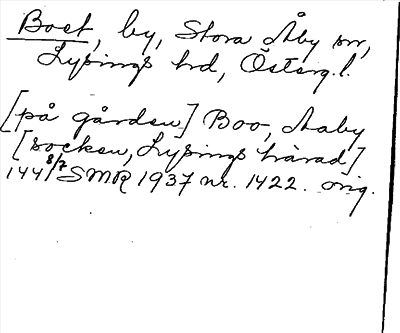 Boet, by, Stora Åby sn,
Lysings hd, Österg. l.
[på gården] Boo, Aaby
[socken, Lysings härad]
1441 8/7 SMR 1937 nr. 1422. orig.